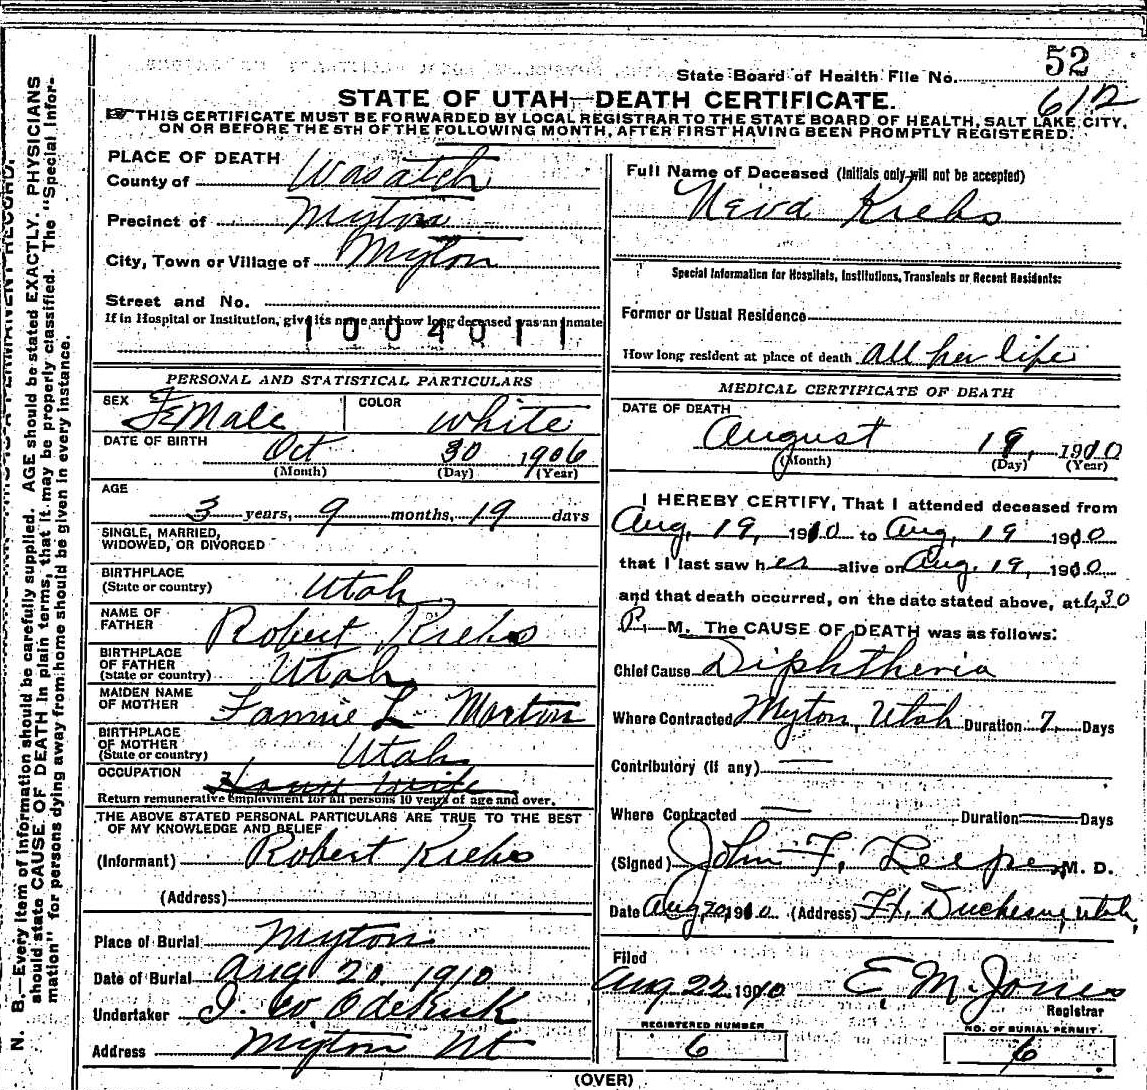 52
State Board of Health File No. 612
STATE OF UTAH—DEATH CERTIFICATE.
THIS CERTIFICATE MUST BE FORWARDED BY LOCAL REGISTRAR TO THE STATE BOARD OF HEALTH, SALT LAKE CITY,
ON OR BEFORE THE 5TH OF THE FOLLOWING MONTH, AFTER FIRST HAVING BEEN PROMPTLY REGISTERED.
PLACE OF DEATH
County of Wasatch
Precinct of Myton
City, Town or Village of Myton
Street and No.
If in Hospital or Institution, give its name and how long deceased was an inmate
1004011
PERSONAL AND STATISTICAL PARTICULARS
SEX Female COLOR white
DATE OF BIRTH
Oct 30 1906
(Month) (Day) (Year)
AGE
3 years, 9 months, 19 days
SINGLE, MARRIED,
WIDOWED, OR DIVORCED
BIRTHPLACE
(State or country) Utah
NAME OF
FATHER Robert Krebs
BIRTHPLACE
OF FATHER
(State or country) Utah
MAIDEN NAME
OF MOTHER Fannie L. Morton
BIRTHPLACE
OF MOTHER
(State or country) Utah
OCCUPATION
Return remunerative employment for all persons 10 years of age and over.
THE ABOVE STATED PERSONAL PARTICULARS ARE TRUE TO THE BEST
OF MY KNOWLEDGE AND BELIEF
(Informant) Robert Krebs
(Address)
Place of Burial Myton
Date of Burial Aug 20, 1910
Undertaker
Address Myton Ut
Full Name of Deceased (Initials only will not be accepted)
Krebs
Special Information for Hospitals, Institutions, Transients or Recent Residents:
Former or Usual Residence
How long resident at place of death all her life
MEDICAL CERTIFICATE OF DEATH
DATE OF DEATH
August 19, 1910
(Month) (Day) (Year)
I HEREBY CERTIFY, That I attended deceased from
Aug, 19, 1910 to Aug, 19 1910
that I last saw her alive on Aug. 19, 1910
and that death occurred, on the date stated above, at 6,30
P. M. The CAUSE OF DEATH was as follows:
Chief Cause Diphtheria
Where Contracted Myton, Utah Duration 7 Days
Contributory (if any) —
Where Contracted — Duration — Days
(Signed) John F. M. D.
Date Aug, 20, 1910 (Address) Ft. Duchesne, Utah,
Filed
Aug 22 1910 E. M. Jones
Registrar
REGISTERED NUMBER
6
NO. OF BURIAL PERMIT.
6
(OVER)
N. B.—Every item of information should be carefully supplied. AGE should be stated EXACTLY. PHYSICIANS
should state CAUSE OF DEATH in plain terms, that it may be properly classified. The "Special Infor-
mation" for persons dying away from home should be given in every instance.